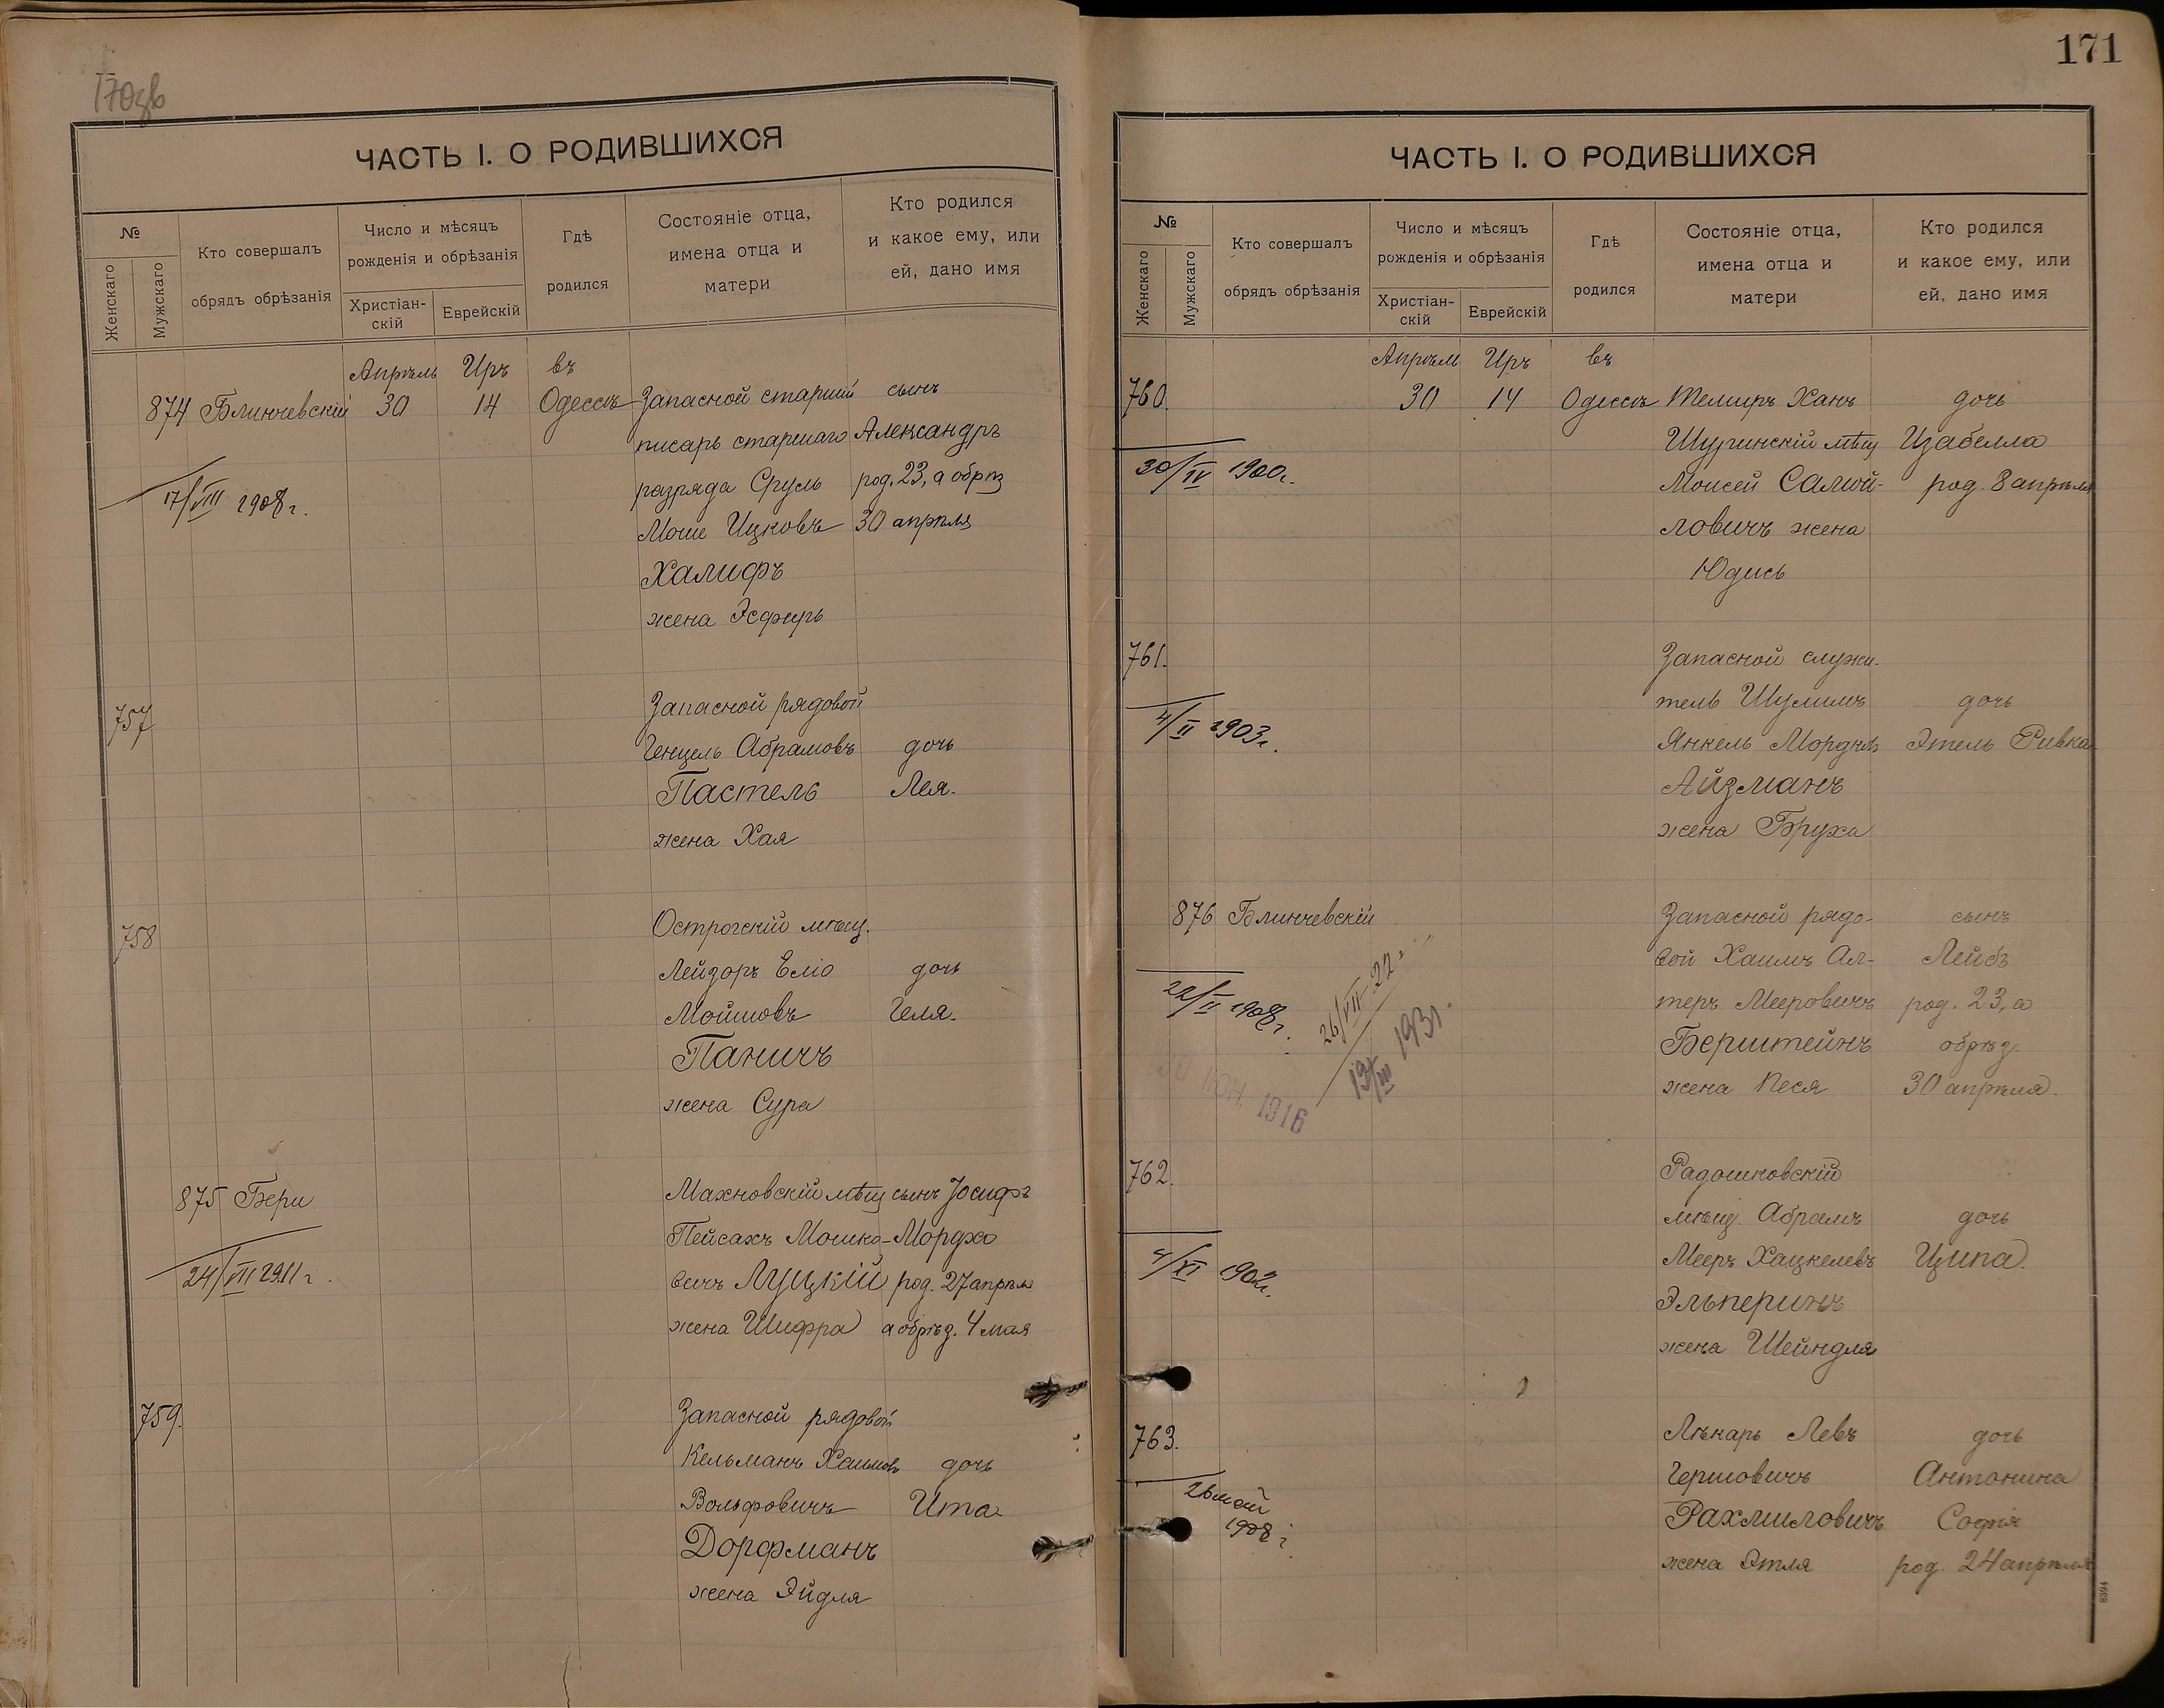 170зв
ЧАСТЬ I. О РОДИВШИХСЯ
№
Женскаго
Мужскаго
Кто совершалъ
обрядъ обрѣзанія
Число и мѣсяцъ
рожденія и обрѣзанія
Христіан-
скій
Еврейскій
Гдѣ
родился
Состояніе отца,
имена отца и
матери
Кто родился
и какое ему, или
ей, дано имя
Апрѣль Иръ въ
874 Блинчевскій 30 14 Одессѣ Запасной старшій сынъ
писарь старшаго Александръ
разряда Сруль род. 23, а обрѣз
17/VIII 1908 г.
Моше Ицковъ 30 апрѣля
Халифъ
жена Эсфирь
757
Запасной рядовой
Генцель Абрамовъ дочь
Пастель Лея.
жена Хая
758
Острогскій мѣщ.
Лейзоръ Еліо дочь
Мойшовъ Геля.
Паничъ
жена Сура
875 Бери Махновскій мѣщ сынъ Іосифъ
Пейсахъ Мошко- Мордхо
24/VIII 1911 г.
вичъ Луцкій род. 27 апрѣля
жена Шифра а обрѣз. 4 мая
759.
Запасной рядовой
Кельманъ Хаимовъ дочь
Вольфовичъ Ита
Дорфманъ
жена Эйдля
171
ЧАСТЬ I. О РОДИВШИХСЯ
№
Женскаго
Мужскаго
Кто совершалъ
обрядъ обрѣзанія
Число и мѣсяцъ
рожденія и обрѣзанія
Христіан-
скій
Еврейскій
Гдѣ
родился
Состояніе отца,
имена отца и
матери
Кто родился
и какое ему, или
ей, дано имя
Апрѣль Иръ въ
760. 30 14 Одессѣ Темиръ Ханъ дочь
Шуринскій мѣщ Изабелла
30/IV 1900 г.
Моисей Самой- род. 8 апрѣля
ловичъ жена
Юдись
761.
Запасной служи-
тель Шулимъ дочь
4/II 1903 г.
Янкель Мордкъ Этель Ривка
Айзманъ
жена Бруха
876 Блинчевскій Запасной рядо- сынъ
вой Хаимъ Ал- Лейбъ
22/II 1908 г.
26/VII 22 г.
теръ Мееровичъ род. 23, а
19/III 1931.
Берштейнъ обрѣз.
30 ІЮН. 1916
жена Песя 30 апрѣля.
762.
Радошковскій
мѣщ. Абрамъ дочь
4/XI 1902 г.
Мееръ Хацкелевъ Ципа.
Эльперинъ
жена Шейндля
763. Лѣкарь Левъ дочь
Гершовичъ Антонина
26 май
1908 г.
Рахмиловичъ Софія
жена Этля род. 24 апрѣля